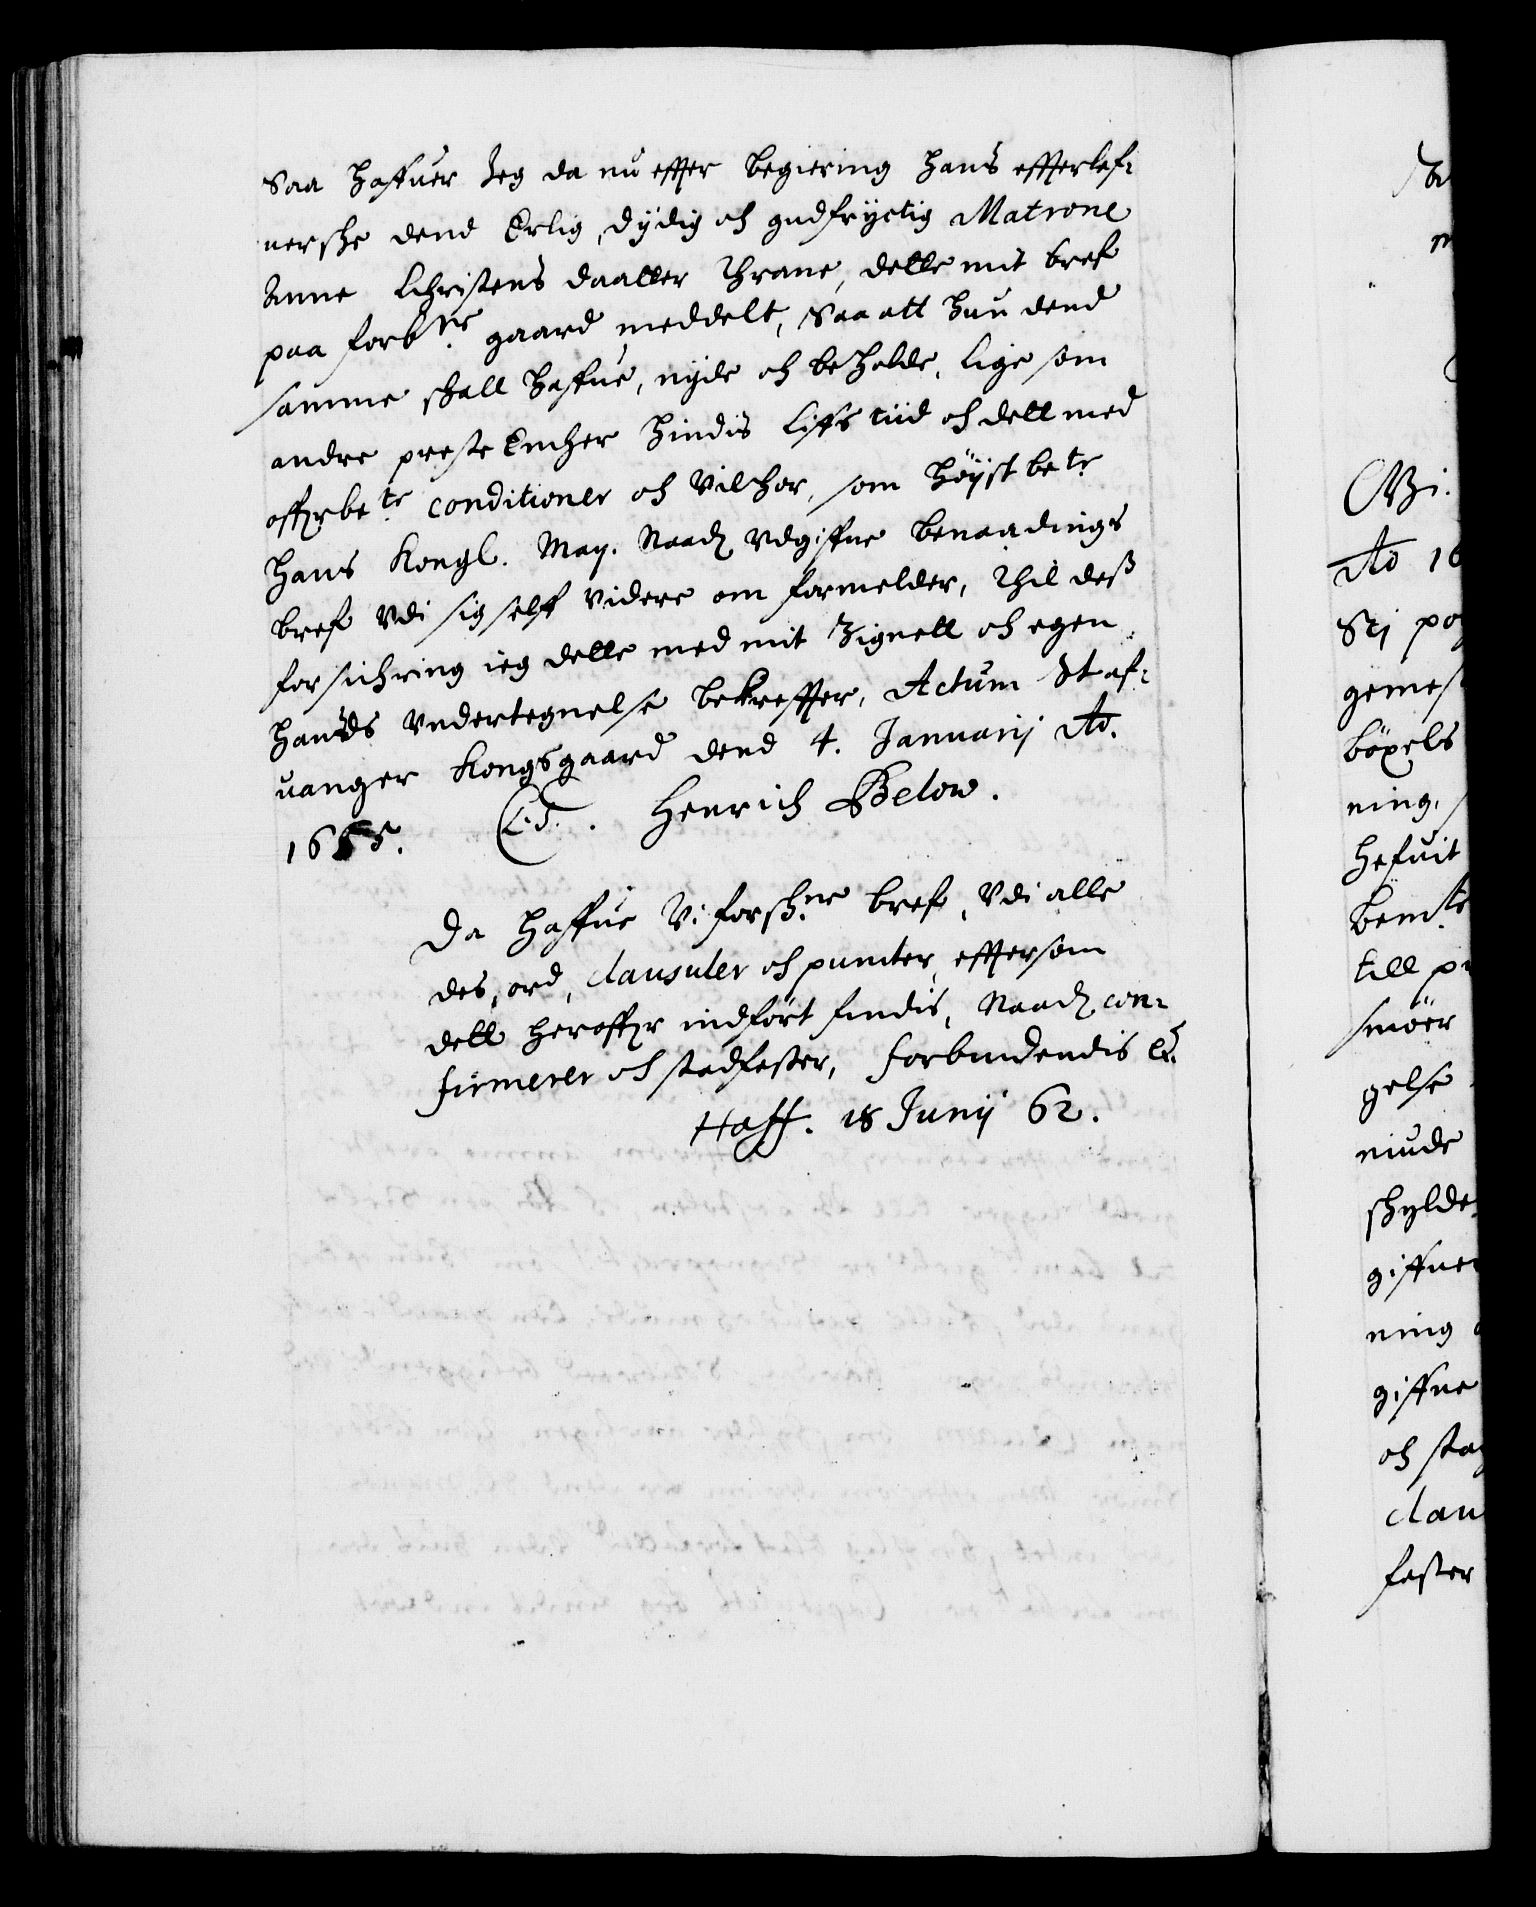 Saa Haffuer Jeg da nu effter begiering hans effterlef¬
uerske dend Erlig, dydig och gudfryctig Matrone
Anne Christens daatter Thrane, dette mit bref
paa forbne gaard meddelt, Saa att hun dend
samme skall haffue, nyde och beholde, lige som
andre preste Encker hindis Liffs tiid och dett med
offuerbete conditioner och vilchor, som høystbete
Hans Kongl. May. Naad. udgiffne benaadings
bref udi sig self videre om formelder, Thil dess
forsichring ieg dette med mit Zignett och egen
hands undertegnelse bekreffter, Actum Staf¬
uanger Kongsgaard dend 4. Januarij Ao.
1655. (L.S.) Henrich Below.
Da Haffue Vi forskne bref, udi alle
des, ord, clausuler och puncter, effter som
dett heroffuer indført findis, Naad. con¬
firmerer och stadfester, forbindendis etc.
Haff. 18 Junij 62.
Vi.
Ao 16
gemes
ning,
bemte
till p
smøer
gelse
niude
skylde
giffue
ning
giffne
och sta
clau
fester